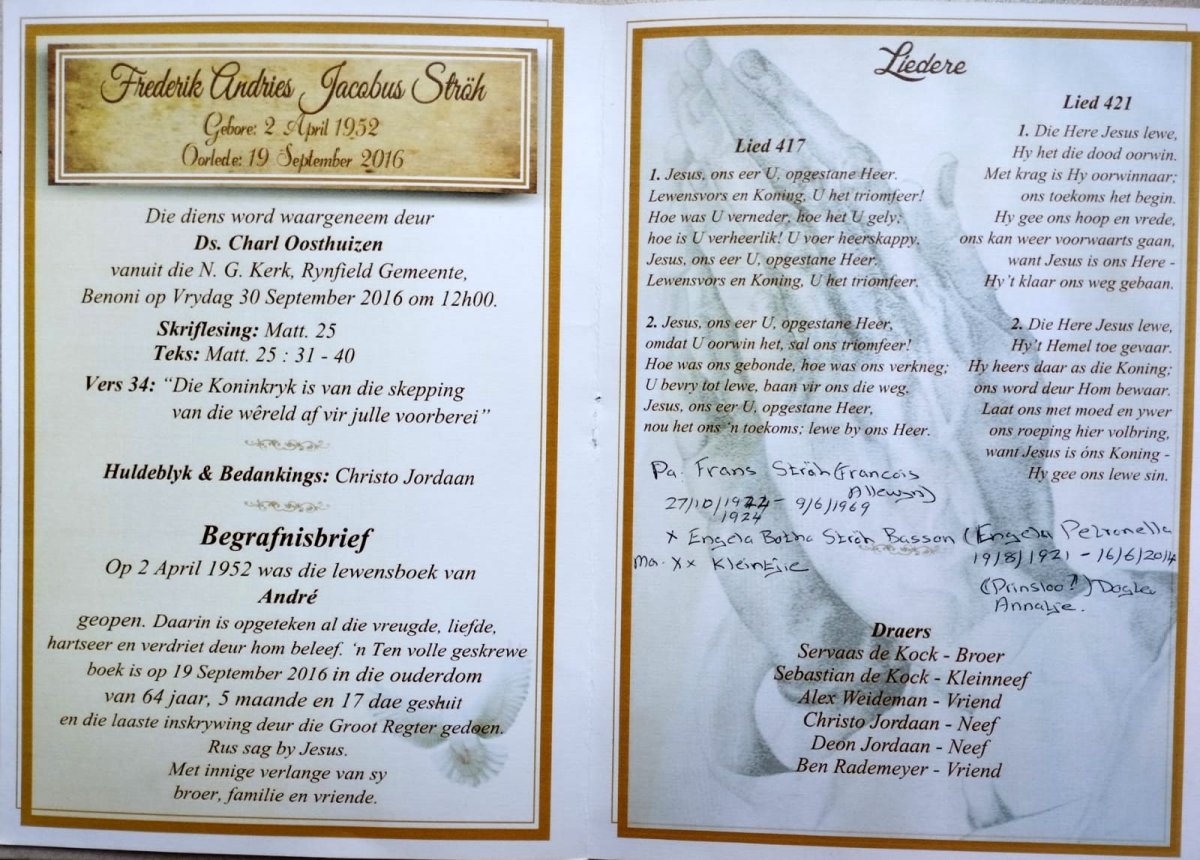 Frederik Andries Jacobus Ströh
Gebore: 2 April 1952
Oorlede: 19 September 2016
Die diens word waargeneem deur
Ds. Charl Oosthuizen
vanuit die N. G. Kerk, Rynfield Gemeente,
Benoni op Vrydag 30 September 2016 om 12h00.
Skriflesing: Matt. 25
Teks: Matt. 25 : 31 - 40
Vers 34: “Die Koninkryk is van die skepping
van die wêreld af vir julle voorberei”
Huldeblyk & Bedankings: Christo Jordaan
Begrafnisbrief
Op 2 April 1952 was die lewensboek van
André
geopen. Daarin is opgeteken al die vreugde, liefde,
hartseer en verdriet deur hom beleef. ‘n Ten volle geskrewe
boek is op 19 September 2016 in die ouderdom
van 64 jaar, 5 maande en 17 dae gesluit
en die laaste inskrywing deur die Groot Regter gedoen.
Rus sag by Jesus.
Met innige verlange van sy
broer, familie en vriende.
Liedere
Lied 417
1. Jesus, ons eer U, opgestane Heer.
Lewensvors en Koning, U het triomfeer!
Hoe was U verneder, hoe het U gely;
hoe is U verheerlik! U voer heerskappy.
Jesus, ons eer U, opgestane Heer.
Lewensvors en Koning, U het triomfeer.
2. Jesus, ons eer U, opgestane Heer,
omdat U oorwin het, sal ons triomfeer!
Hoe was ons gebonde, hoe was ons verkneg;
U bevry tot lewe, baan vir ons die weg.
Jesus, ons eer U, opgestane Heer,
nou het ons ‘n toekoms; lewe by ons Heer.
Lied 421
1. Die Here Jesus lewe,
Hy het die dood oorwin.
Met krag is Hy oorwinnaar;
ons toekoms het begin.
Hy gee ons hoop en vrede,
ons kan weer voorwaarts gaan,
want Jesus is ons Here -
Hy’t klaar ons weg gebaan.
2. Die Here Jesus lewe,
Hy’t Hemel toe gevaar.
Hy heers daar as die Koning;
ons word deur Hom bewaar.
Laat ons met moed en ywer
ons roeping hier volbring,
want Jesus is óns Koning -
Hy gee ons lewe sin.
Pa. Frans Ströh (Francois
Allewyn)
27/10/1924 - 9/6/1969
1924
x Engela Botha Ströh Basson (Engela Petronella
Ma. xx Kleintjie 19/8/1921 - 16/6/2014
(Prinsloo?) Dogter
Annatjie.
Draers
Servaas de Kock - Broer
Sebastian de Kock - Kleinneef
Alex Weideman - Vriend
Christo Jordaan - Neef
Deon Jordaan - Neef
Ben Rademeyer - Vriend